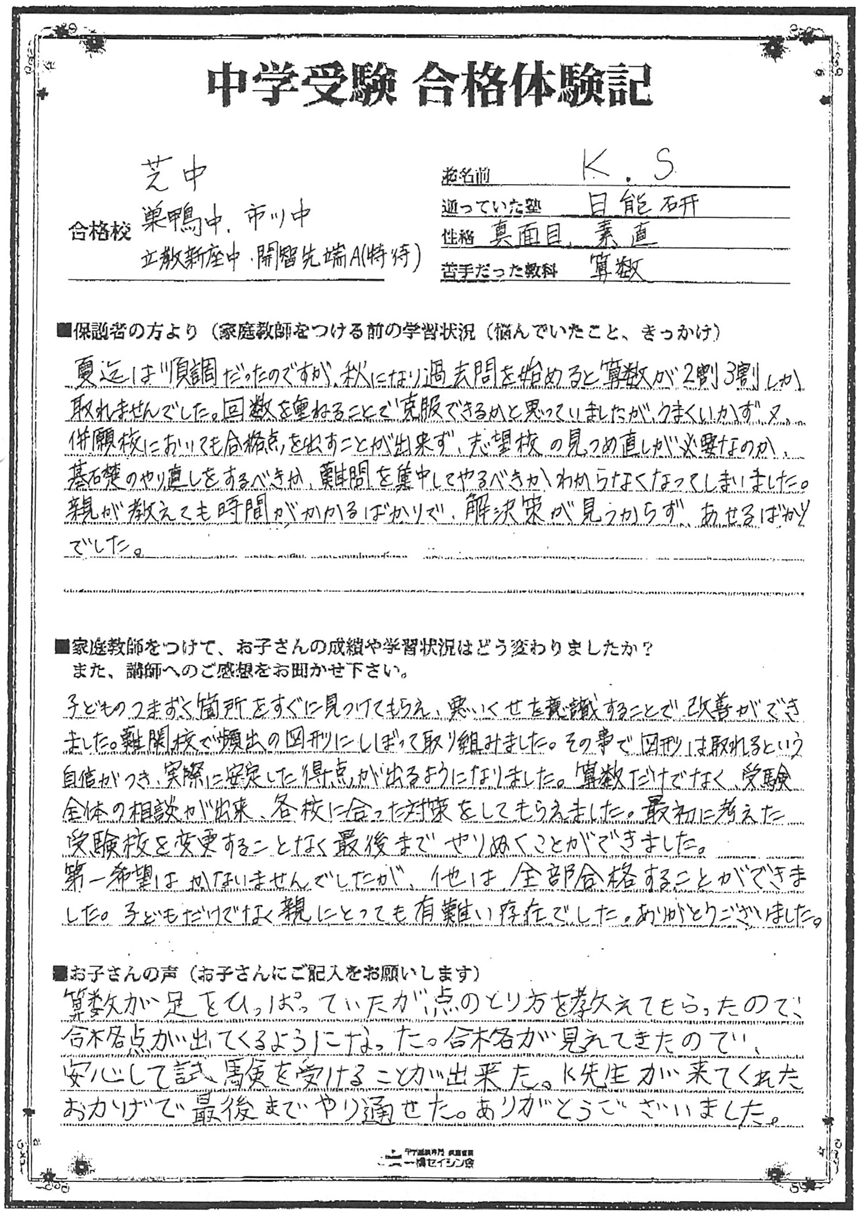 中学受験 合格体験記
芝中
合格校 巣鴨中、市川中
立教新座中・開智先端A(特待)
お名前 K.S
通っていた塾 日能研
性格 真面目、素直
苦手だった教科 算数
■保護者の方より（家庭教師をつける前の学習状況（悩んでいたこと、きっかけ）
夏迄は順調だったのですが、秋になり過去問を始めると算数が2割3割しか
取れませんでした。回数を重ねることで克服できるかと思っていましたが、うまくいかず、又、
併願校においても合格点を出すことが出来ず、志望校の見つめ直しが必要なのか、
基礎のやり直しをするべきか、難問を集中してやるべきかわからなくなってしまいました。
親が教えても時間がかかるばかりで、解決策が見つからず、あせるばかり
でした。
■家庭教師をつけて、お子さんの成績や学習状況はどう変わりましたか？
また、講師へのご感想をお聞かせ下さい。
子どものつまずく箇所をすぐに見つけてもらえ、悪いくせを意識することで改善ができ
ました。難関校で頻出の図形にしぼって取り組みました。その事で図形は取れるという
自信がつき、実際に安定した得点が出るようになりました。算数だけでなく、受験
全体の相談が出来、各校に合った対策をしてもらえました。最初に考えた
受験校を変更することなく最後までやりぬくことができました。
第一希望はかないませんでしたが、他は全部合格することができま
した。子どもだけでなく親にとっても有難い存在でした。ありがとうございました。
■お子さんの声（お子さんにご記入をお願いします）
算数が足をひっぱっていたが、点のとり方を教えてもらったので、
合格点が出てくるようになった。合格が見えてきたので、
安心して試験を受けることが出来た。K先生が来てくれた
おかげで最後までやり通せた。ありがとうございました。
一橋セイシン会